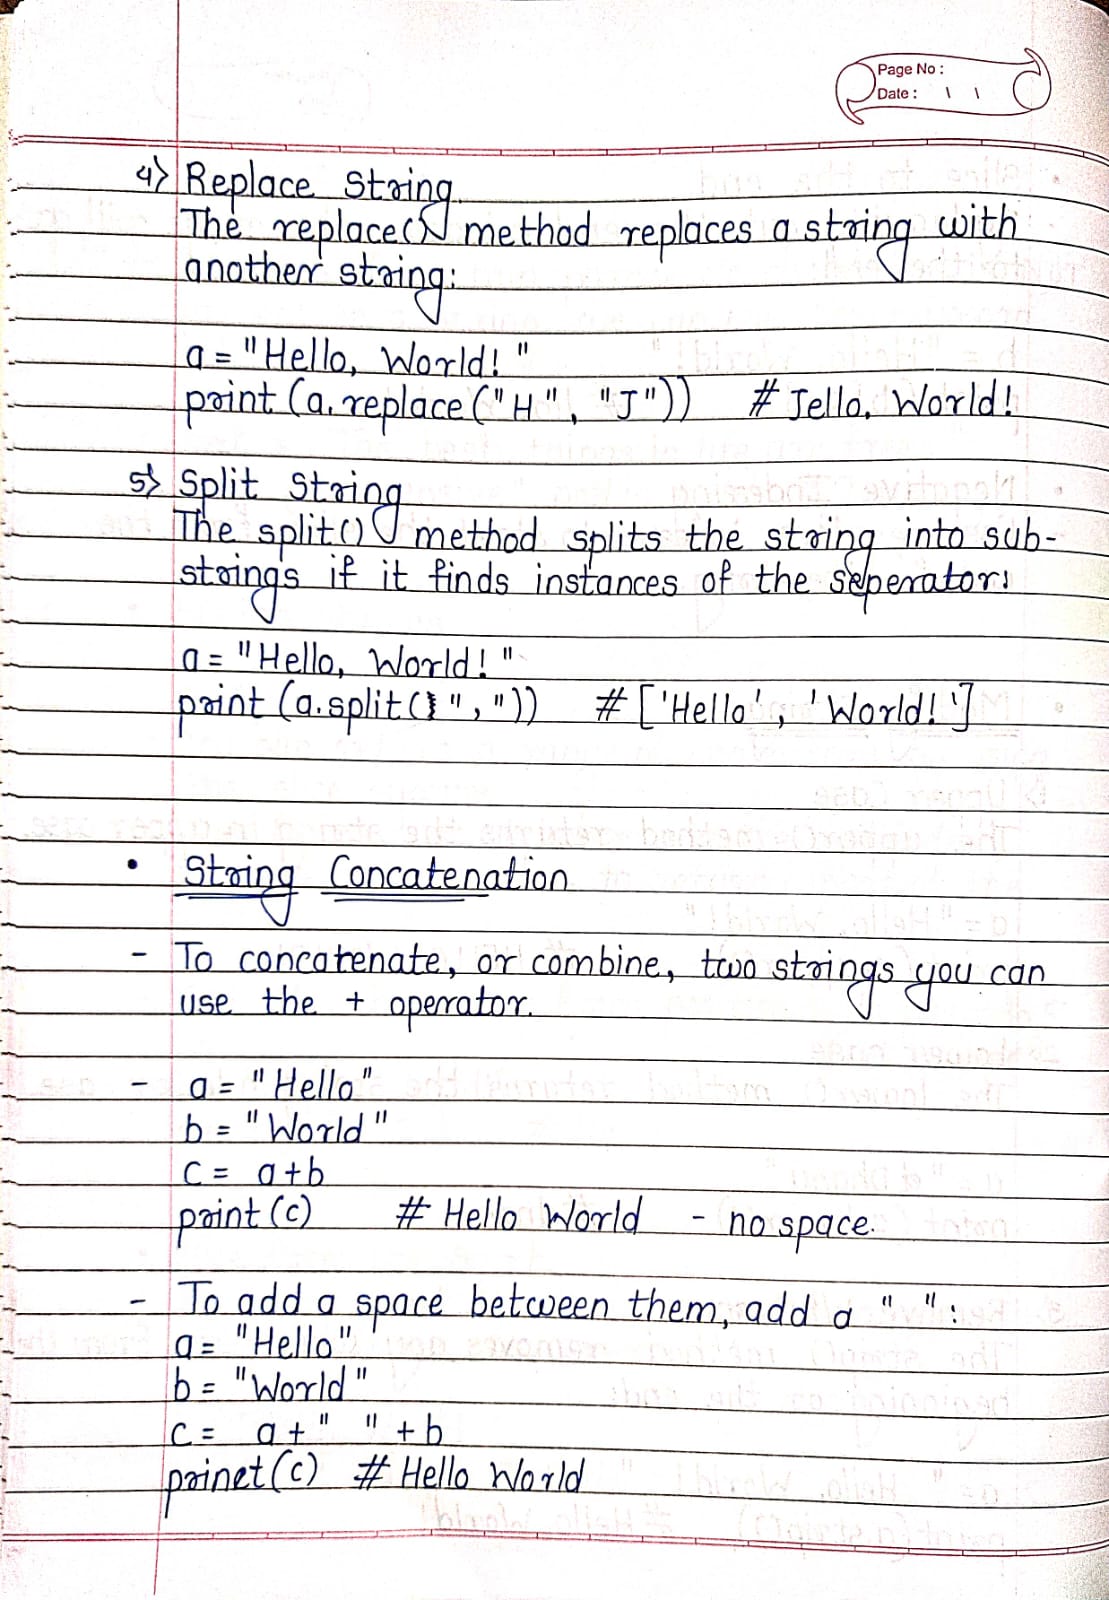 Page No :
Date : \ \
4) Replace String
The replace() method replaces a string with
another string:
a = "Hello, World! "
print (a.replace("H", "J")) # Jello, World!
5) Split String
The split() method splits the string into sub-
strings if it finds instances of the seperator:
a = "Hello, World! "
print (a.split(",")) # ['Hello', 'World!']
• String Concatenation
- To concatenate, or combine, two strings you can
use the + operator.
- a = "Hello"
b = "World"
c = a+b
print (c) # Hello World - no space.
- To add a space between them, add a " ":
a = "Hello"
b = "World"
c = a + " " + b
prinet (c) # Hello World